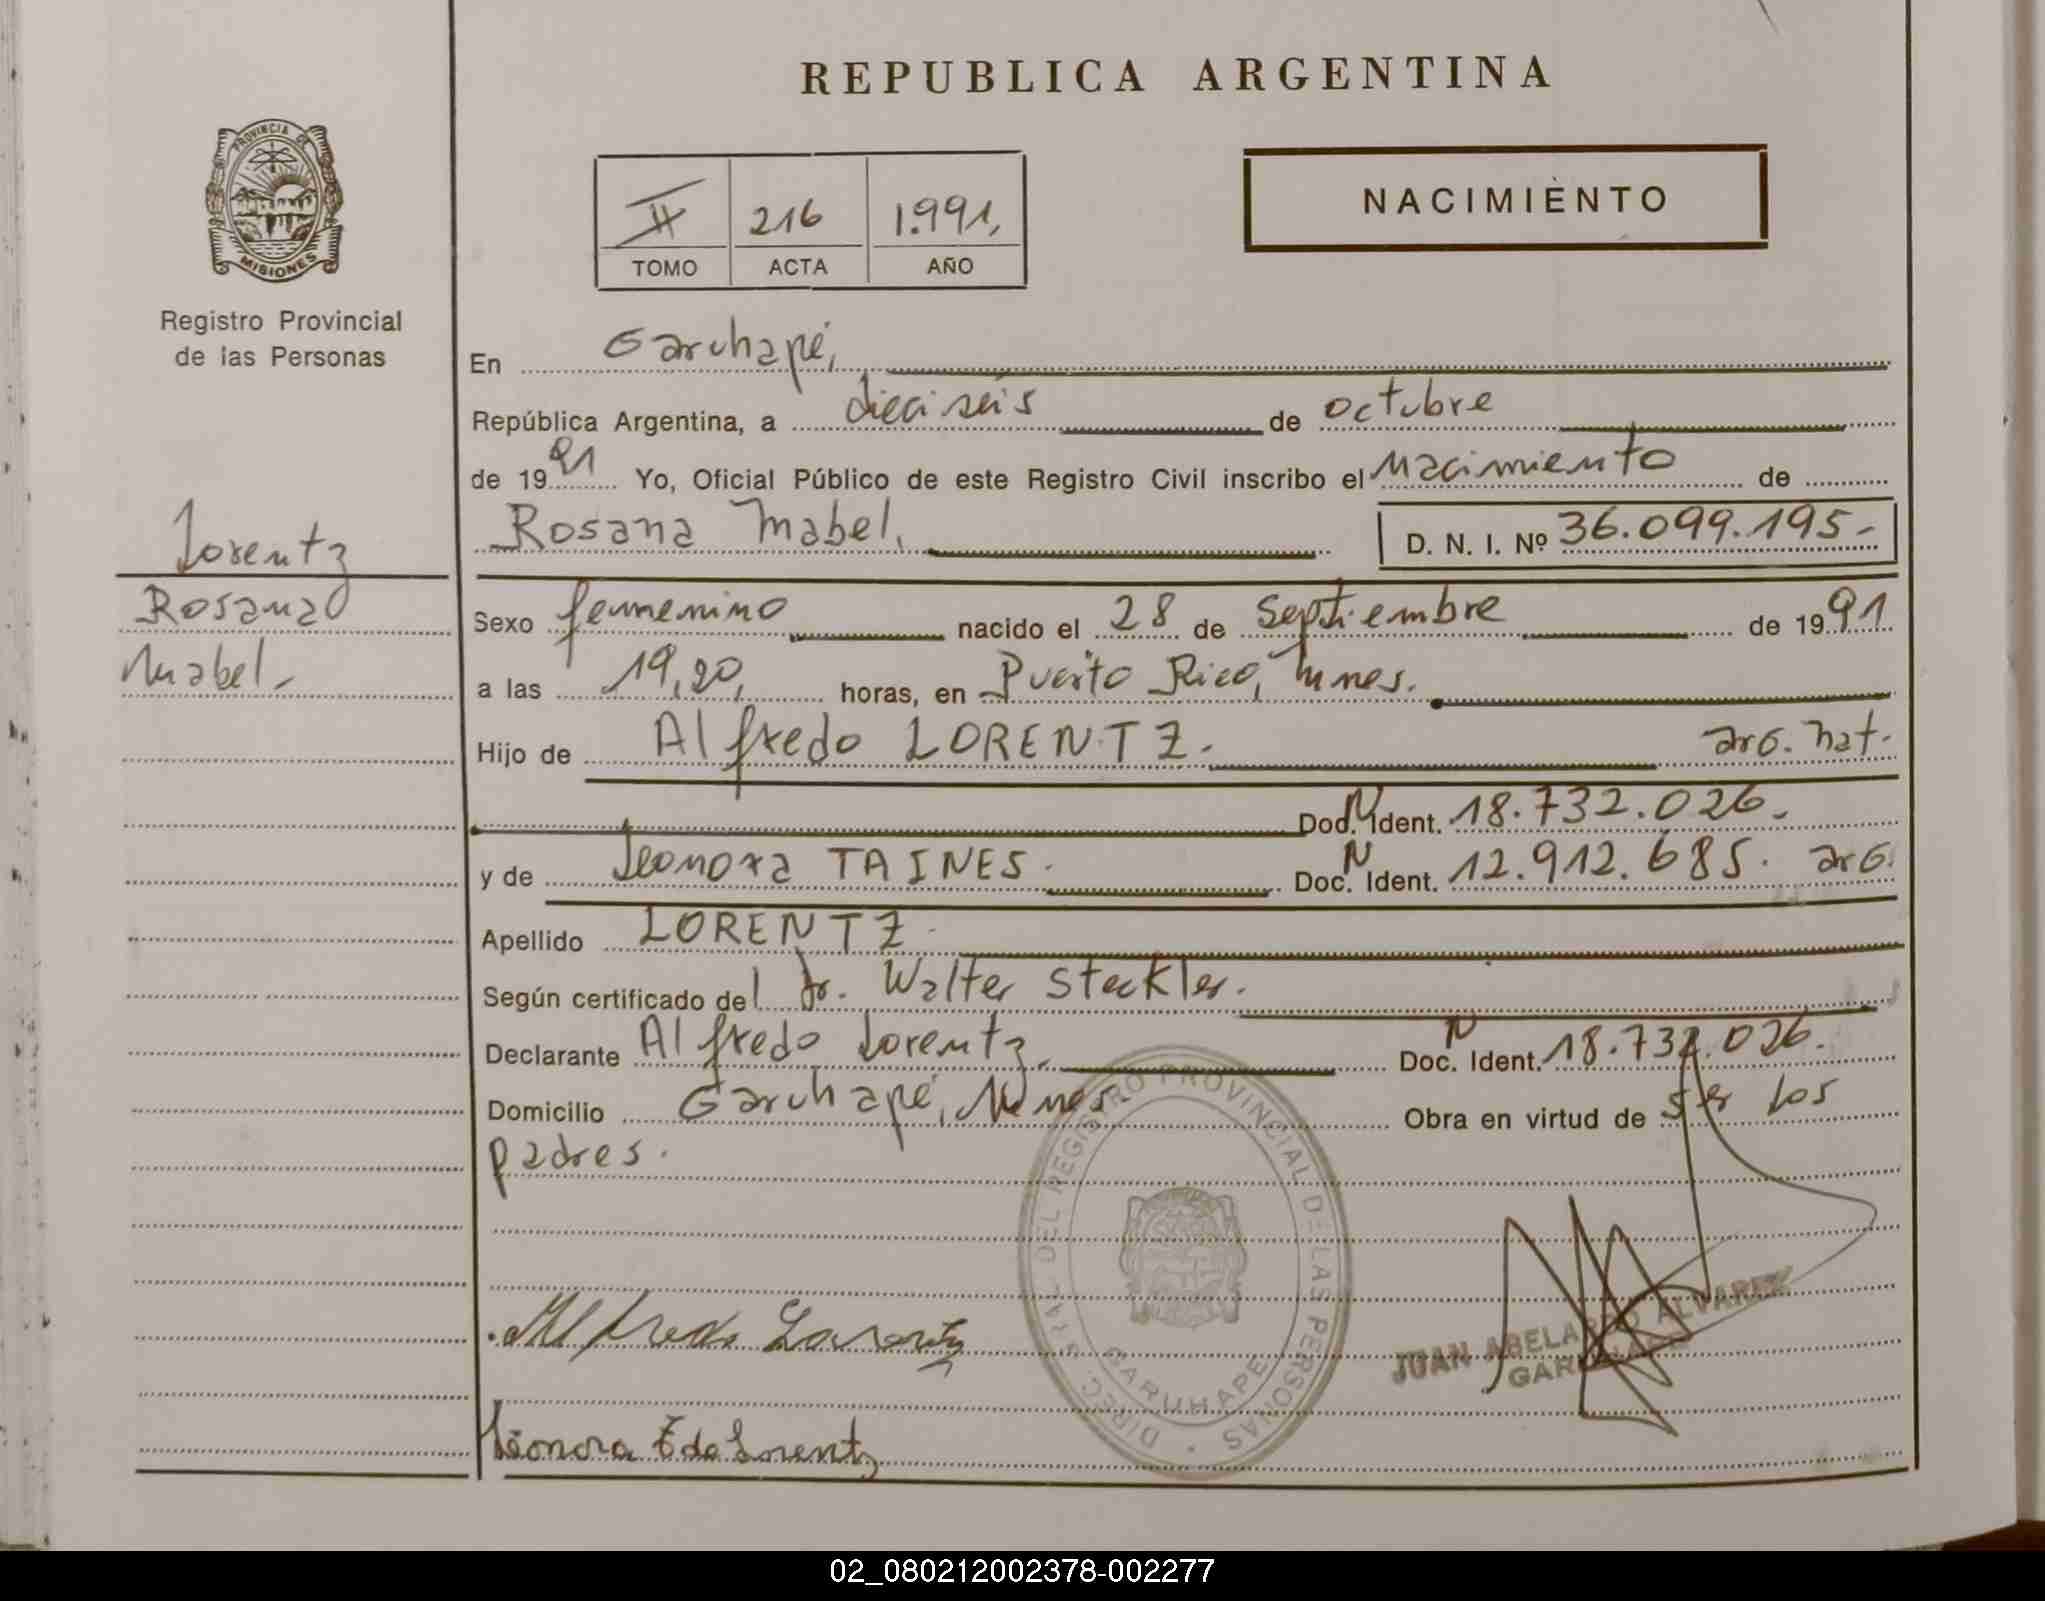 REPUBLICA ARGENTINA
PROVINCIA DE
MISIONES
Registro Provincial
de las Personas
II 216 1.991,
TOMO ACTA AÑO
NACIMIENTO
Lorentz
Rosana
Mabel.-
En Garuhapé,
República Argentina, a dieciseis de octubre
de 1991 Yo, Oficial Público de este Registro Civil inscribo el Nacimiento de
Rosana Mabel, D. N. I. Nº 36.099.195-
Sexo femenino nacido el 28 de Septiembre de 1991
a las 19,20, horas, en Puerto Rico, Mnes.
Hijo de Alfredo LORENTZ. arg. nat.
Doc. N Ident. 18.732.026.
y de Leonora TAINES. Doc. N Ident. 12.912.685. arg.
Apellido LORENTZ.
Según certificado del Dr. Walter Steckler.
Declarante Alfredo Lorentz. Doc. N Ident. 18.732.026.
Domicilio Garuhapé, Mnes. Obra en virtud de ser los
padres.
DIREC. GRAL. DEL REGISTRO PROVINCIAL DE LAS PERSONAS
GARUHAPE
Alfredo Lorentz
JUAN ABELARDO ALVAREZ
GARUHAPE
Leonora T de Lorentz
02_080212002378-002277